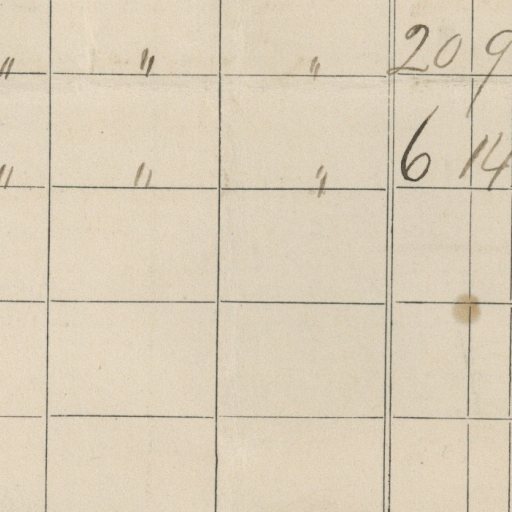 " " " 20 9
" " " 6 14